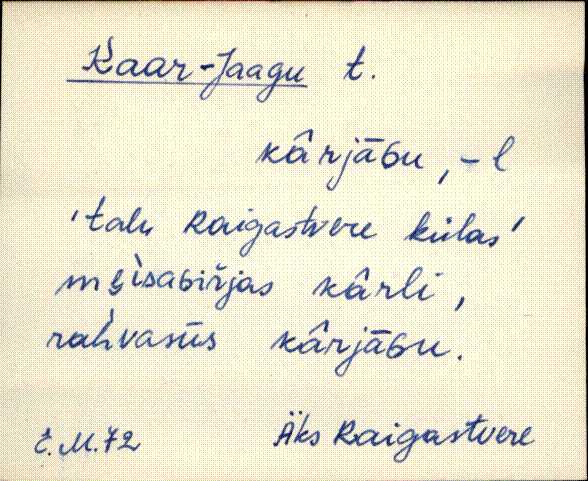 Kaar-Jaagu t.
kârjāʙu, -l
'talu Raigastvere külas'
mɞ̀isaʙiŕjas kârli,
rah̀vasūs kârjāʙu.
E.M.72 Äks Raigastvere